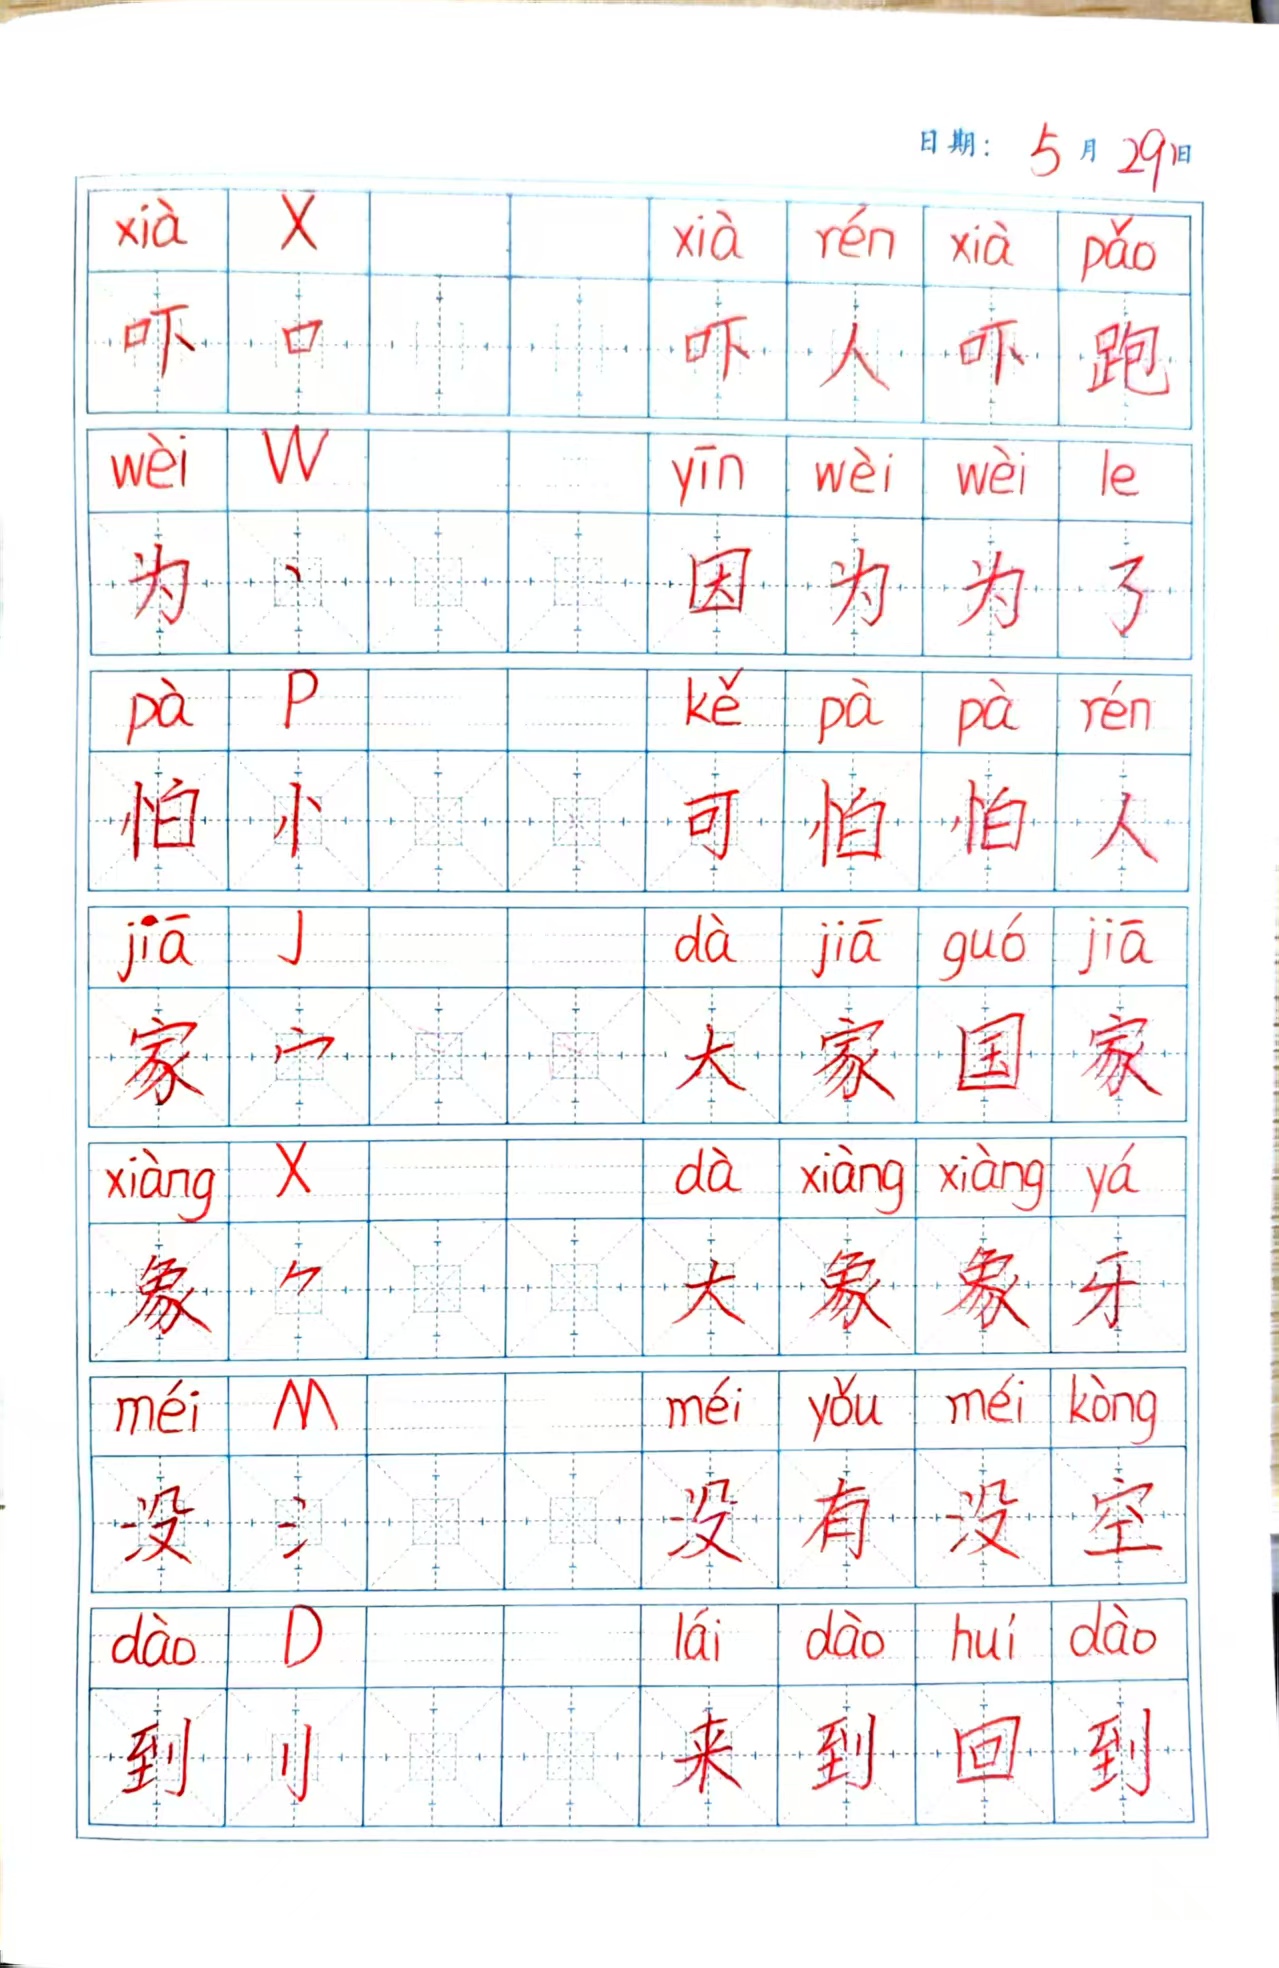 日期： 5 月 29 日
xià X xià rén xià pǎo
吓 口 吓 人 吓 跑
wèi W yīn wèi wèi le
为 丶 因 为 为 了
pà P kě pà pà rén
怕 忄 可 怕 怕 人
jiā J dà jiā guó jiā
家 宀 大 家 国 家
xiàng X dà xiàng xiàng yá
象 ⺈ 大 象 象 牙
méi M méi yǒu méi kòng
没 氵 没 有 没 空
dào D lái dào huí dào
到 刂 来 到 回 到